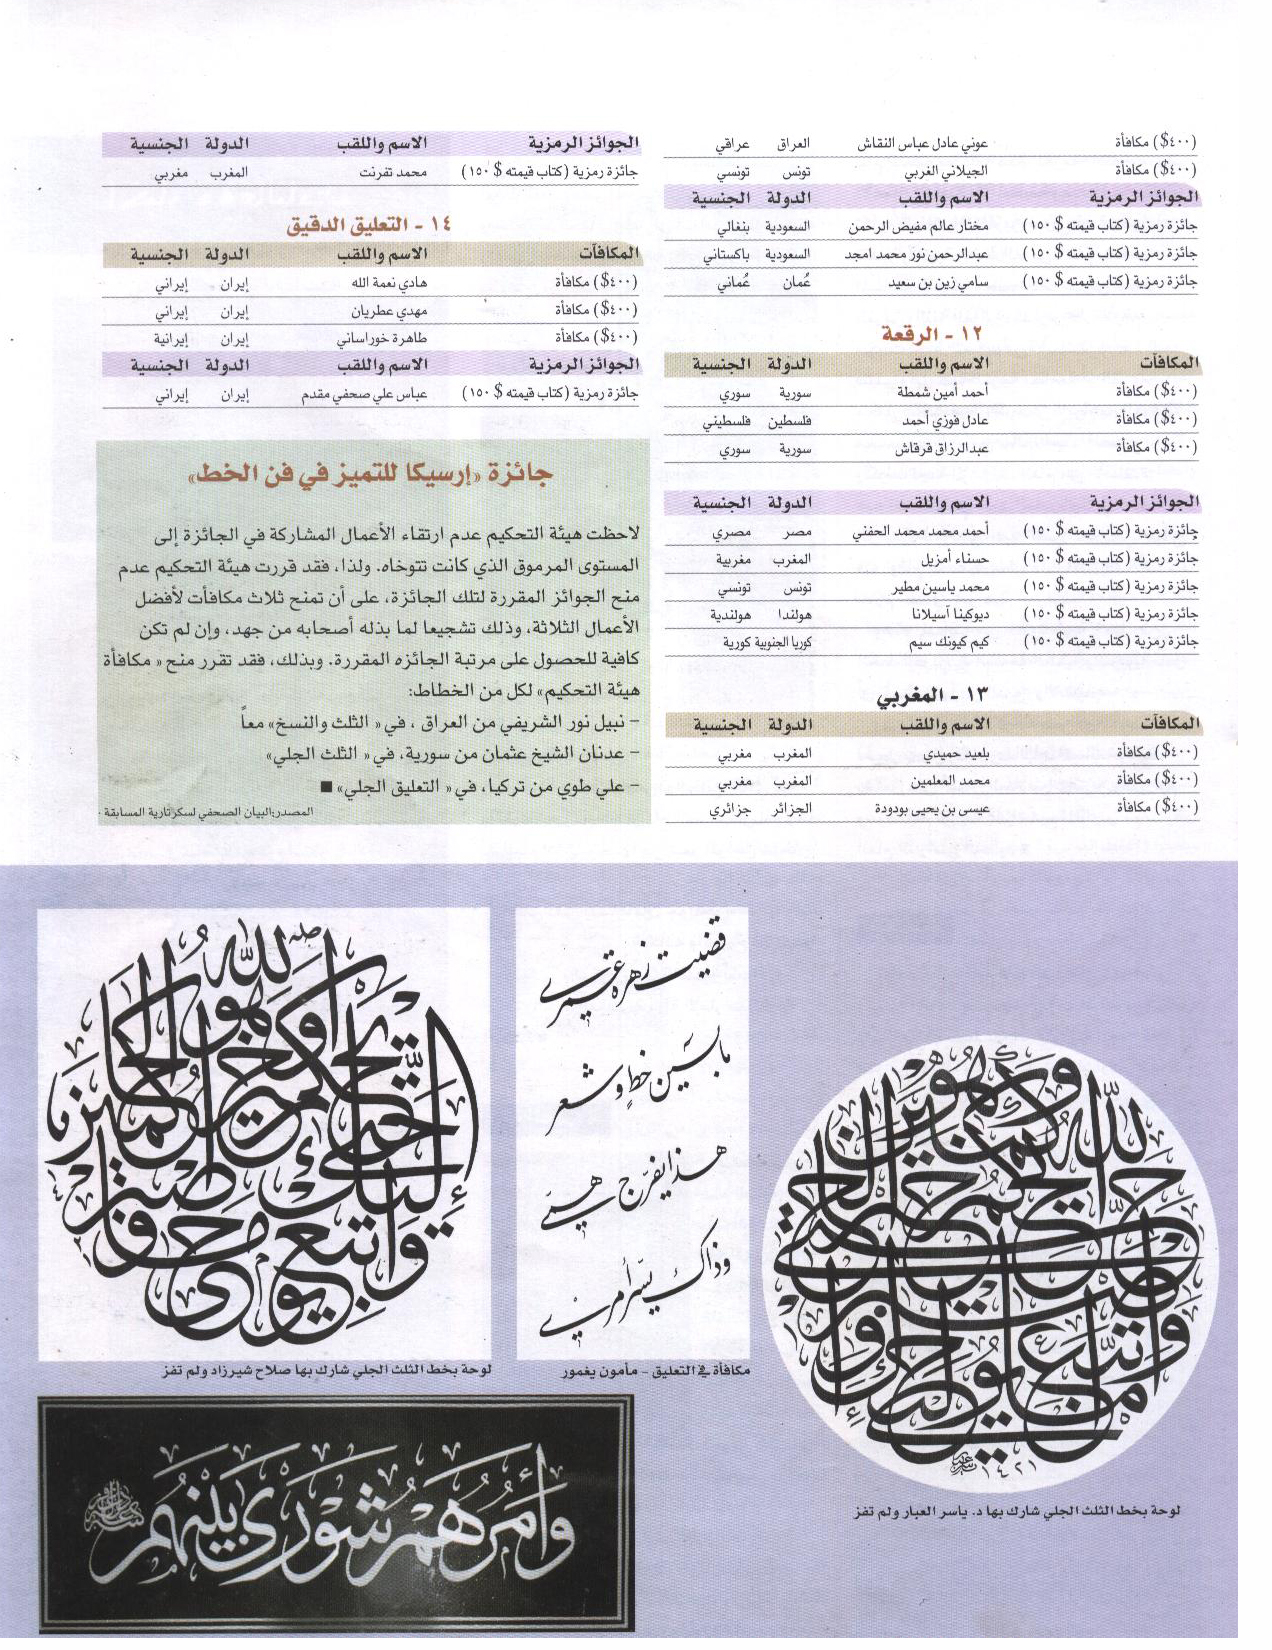 (٤٠٠$) مكافأة عوني عادل عباس النقاش العراق عراقي
(٤٠٠$) مكافأة الجيلاني الغربي تونس تونسي
الجوائز الرمزية الاسم واللقب الدولة الجنسية
جائزة رمزية (كتاب قيمته $ ١٥٠) مختار عالم مفيض الرحمن السعودية بنغالي
جائزة رمزية (كتاب قيمته $ ١٥٠) عبدالرحمن نور محمد امجد السعودية باكستاني
جائزة رمزية (كتاب قيمته $ ١٥٠) سامي زين بن سعيد عُمان عُماني
١٢ - الرقعة
المكافآت الاسم واللقب الدولة الجنسية
(٤٠٠$) مكافأة أحمد أمين شمطة سورية سوري
(٤٠٠$) مكافأة عادل فوزي أحمد فلسطين فلسطيني
(٤٠٠$) مكافأة عبدالرزاق قرقاش سورية سوري
الجوائز الرمزية الاسم واللقب الدولة الجنسية
جائزة رمزية (كتاب قيمته $ ١٥٠) أحمد محمد محمد الحفني مصر مصري
جائزة رمزية (كتاب قيمته $ ١٥٠) حسناء أمزيل المغرب مغربية
جائزة رمزية (كتاب قيمته $ ١٥٠) محمد ياسين مطير تونس تونسي
جائزة رمزية (كتاب قيمته $ ١٥٠) ديوكينا آسيلانا هولندا هولندية
جائزة رمزية (كتاب قيمته $ ١٥٠) كيم كيونك سيم كوريا الجنوبية كورية
١٣ - المغربي
المكافآت الاسم واللقب الدولة الجنسية
(٤٠٠$) مكافأة بلعيد حميدي المغرب مغربي
(٤٠٠$) مكافأة محمد المعلمين المغرب مغربي
(٤٠٠$) مكافأة عيسى بن يحيى بودودة الجزائر جزائري
الجوائز الرمزية الاسم واللقب الدولة الجنسية
جائزة رمزية (كتاب قيمته $ ١٥٠) محمد تفرنت المغرب مغربي
١٤ - التعليق الدقيق
المكافآت الاسم واللقب الدولة الجنسية
(٤٠٠$) مكافأة هادي نعمة الله إيران إيراني
(٤٠٠$) مكافأة مهدي عطريان إيران إيراني
(٤٠٠$) مكافأة طاهرة خوراساني إيران إيرانية
الجوائز الرمزية الاسم واللقب الدولة الجنسية
جائزة رمزية (كتاب قيمته $ ١٥٠) عباس علي صحفي مقدم إيران إيراني
جائزة «إرسيكا للتميز في فن الخط»
لاحظت هيئة التحكيم عدم ارتقاء الأعمال المشاركة في الجائزة إلى
المستوى المرموق الذي كانت تتوخاه. ولذا، فقد قررت هيئة التحكيم عدم
منح الجوائز المقررة لتلك الجائزة، على أن تمنح ثلاث مكافآت لأفضل
الأعمال الثلاثة، وذلك تشجيعا لما بذله أصحابه من جهد، وإن لم تكن
كافية للحصول على مرتبة الجائزه المقررة. وبذلك، فقد تقرر منح « مكافأة
هيئة التحكيم» لكل من الخطاط:
– نبيل نور الشريفي من العراق ، في « الثلث والنسخ» معاً
– عدنان الشيخ عثمان من سورية، في « الثلث الجلي»
– علي طوي من تركيا، في « التعليق الجلي» ■
المصدر:البيان الصحفي لسكرتارية المسابقة ٠
قضيت زهرة عمري
ما بين خط وشعر
هذا يفرج همي
وذاك يسر أمري
لوحة بخط الثلث الجلي شارك بها صلاح شيرزاد ولم تفز
مكافأة في التعليق - مأمون يغمور
١٤٢١
لوحة بخط الثلث الجلي شارك بها د. ياسر العبار ولم تفز
وأمرهم شورى بينهم